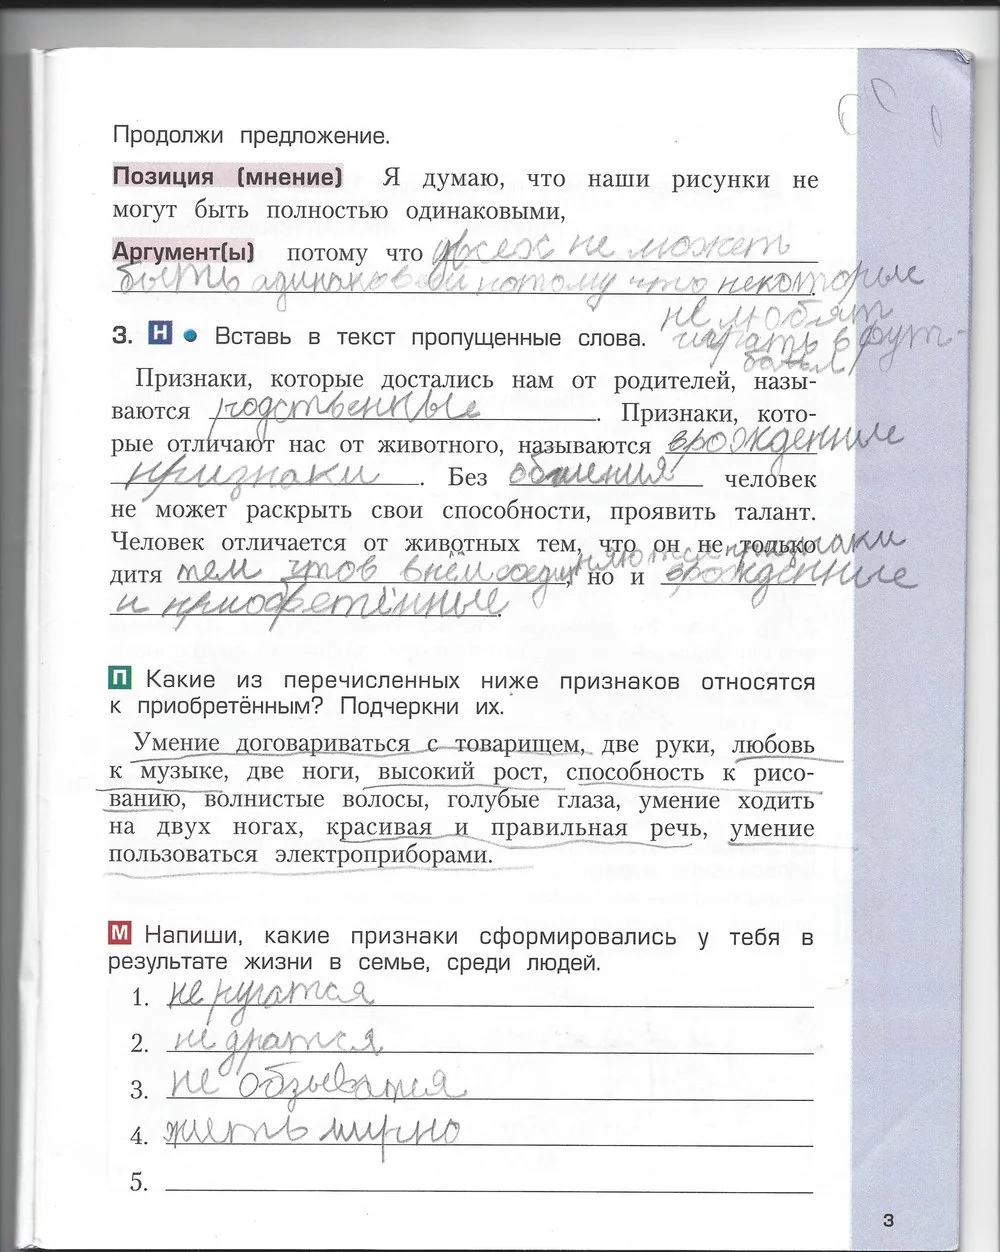 Продолжи предложение.
Позиция (мнение) Я думаю, что наши рисунки не
могут быть полностью одинаковыми,
Аргумент(ы) потому что у всех не может
быть одинаковой потому что некоторые
не любят
играть в фут-
бал
3. Н • Вставь в текст пропущенные слова.
Признаки, которые достались нам от родителей, назы-
ваются родственные. Признаки, кото-
рые отличают нас от животного, называются врожденние
признаки. Без обшения человек
не может раскрыть свои способности, проявить талант.
Человек отличается от животных тем, что он не только
дитя тем чтов внём соединяются признаки, но и врожденние
и приобретённые.
П Какие из перечисленных ниже признаков относятся
к приобретённым? Подчеркни их.
Умение договариваться с товарищем, две руки, любовь
к музыке, две ноги, высокий рост, способность к рисо-
ванию, волнистые волосы, голубые глаза, умение ходить
на двух ногах, красивая и правильная речь, умение
пользоваться электроприборами.
М Напиши, какие признаки сформировались у тебя в
результате жизни в семье, среди людей.
1. не ругатся
2. не дратся
3. не обзыватся
4. жить мирно
5.
3